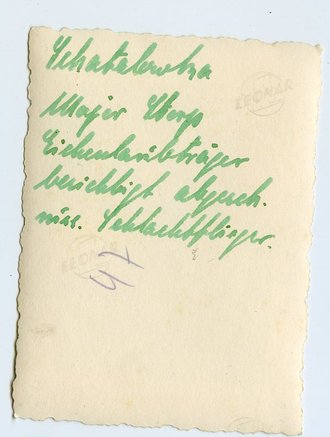 Schatalowka
Major Stepp
Eichenlaubträger
besichtigt abgesch.
russ. Schlachtflieger.
LEONAR
LEONAR